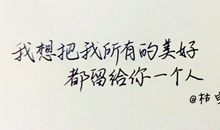 我想把我所有的美好
都留给你一个人